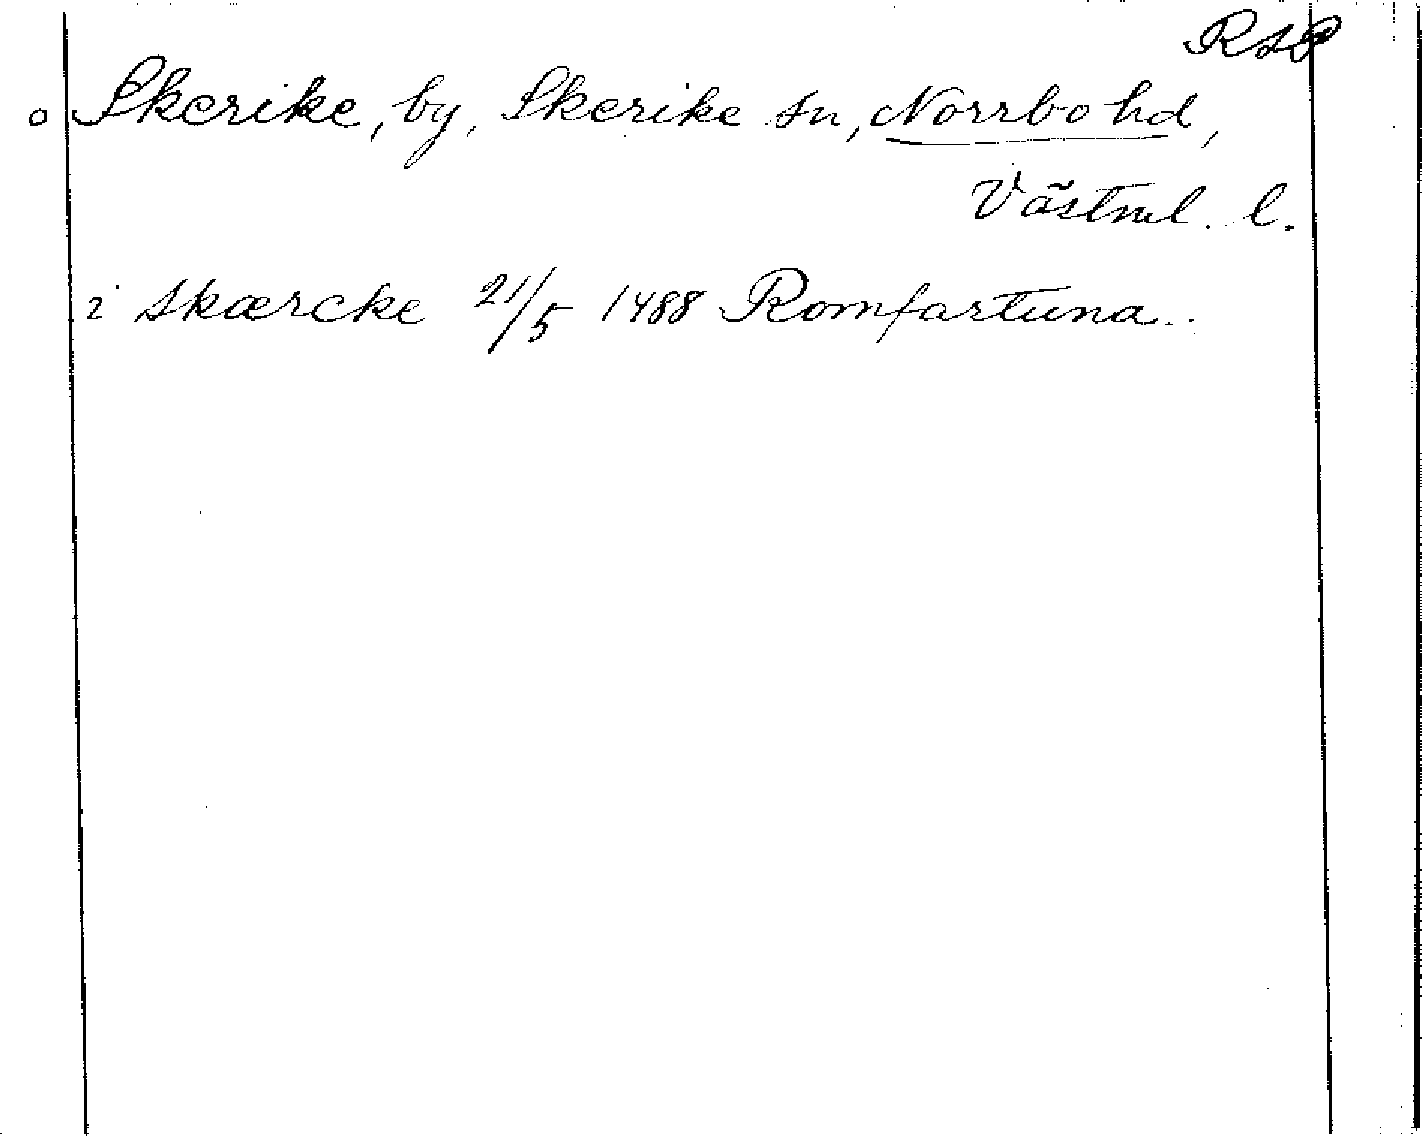 RAP
o Skerike, by, Skerike sn, Norrbo hd,
Västml. l.
i skærcke 21/5 1488 Romfartuna.